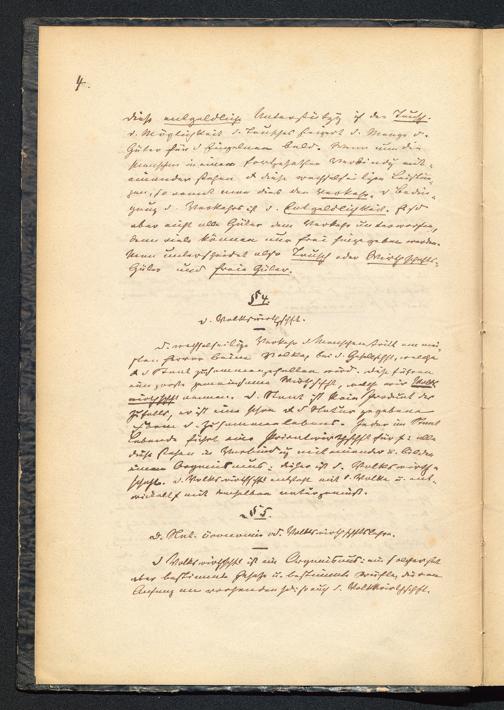 4.
diese entgeldliche Unterstützg ist der Tausch.
d. Möglichkeit d. Tausches steigert d. Menge d.
Güter für d. Einzelnen bald. Wenn nun die
Menschen in einem fortgesetzten Verbindg mit-
einander stehen d diese wechselseitigen Leistun-
gen, so nennt man dies den Verkehr. d Bedin-
gung d. Verkehrs ist d. Entgeldlichkeit. Es sd
aber nicht alle Güter dem Verkehr unterworfen,
denn viele können nur frei hingegeben werden.
Man unterscheidet also Tausch oder Wirthschfts-
Güter und freie Güter.
§ 4.
d. Volkswirthschft.
D. wechselseitige Verkehr d Menschen tritt am
beim Volke, bei d. Gesellschft, welche
d Staat zusammengehalten wird. Diese führen
eine große gemeinsame Wirthschft, welche wir Volks
wirthschft nennen. d. Staat ist kein Product des
Zufalls, er ist eine schon d d Natur gegebene
Form d. Zusammenlebens. Jeder im Staat
lebende führt eine Privatwirthschft für s; alle
diese stehen in Verbindg miteinander u. bilden
einen Organismus; dieser ist d. Volkswirth-
schft. d. Volkswirthschft entsteht mit d. Volke u. ent-
wickelt s mit demselben naturgemäß.
§ 5.
d. Nat. öconomie od. Volkswirthschftslehre.
d Volkswirthschft ist ein Organismus; ein solcher hat
aber bestimmte Gesetze u. bestimmte Kräfte, die von
Anfang an vorhanden sd; so auch d. Volkswirthschft.